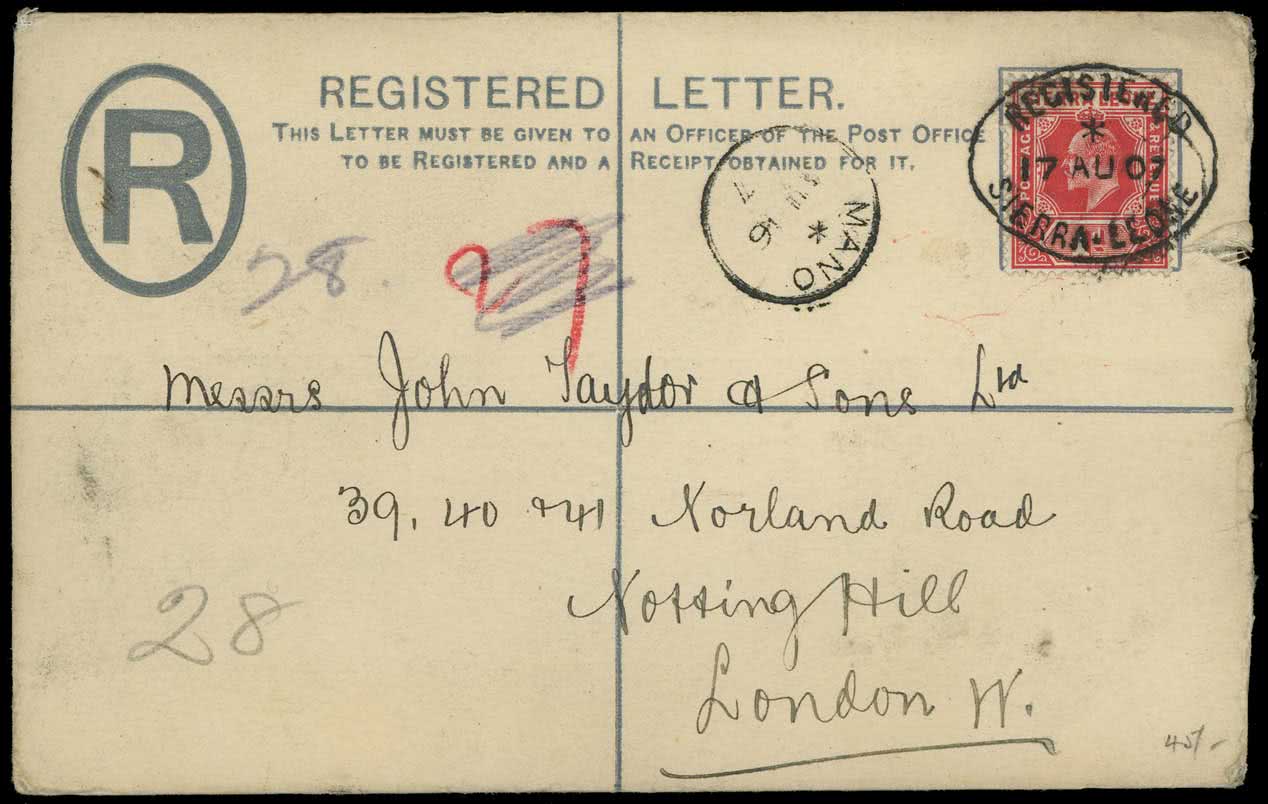 R
REGISTERED LETTER.
THIS LETTER MUST BE GIVEN TO AN OFFICER OF THE POST OFFICE
TO BE REGISTERED AND A RECEIPT OBTAINED FOR IT.
POSTAGE & REVENUE
REGISTERED
*
17 AU 07
SIERRA-LEONE
MANO
*
AU 16
7
28.
27
Messrs John Taylor & Sons Ltd
39, 40 & 41 Norland Road
Notting Hill
London W.
28
45/-